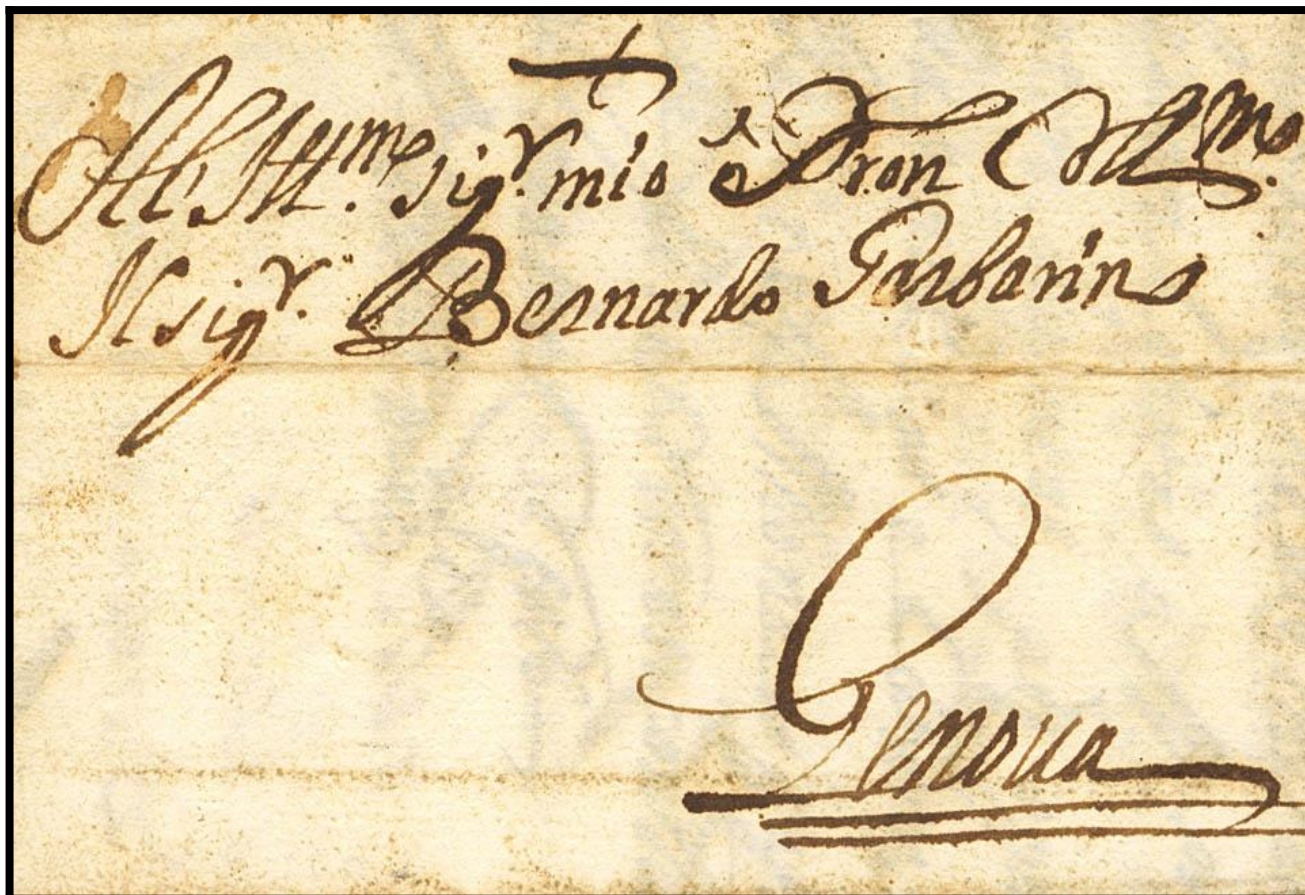 All' Ill.mo sig.r mio e Pron Coll.mo
Il sig.r Bernardo Garbarino
Genoua